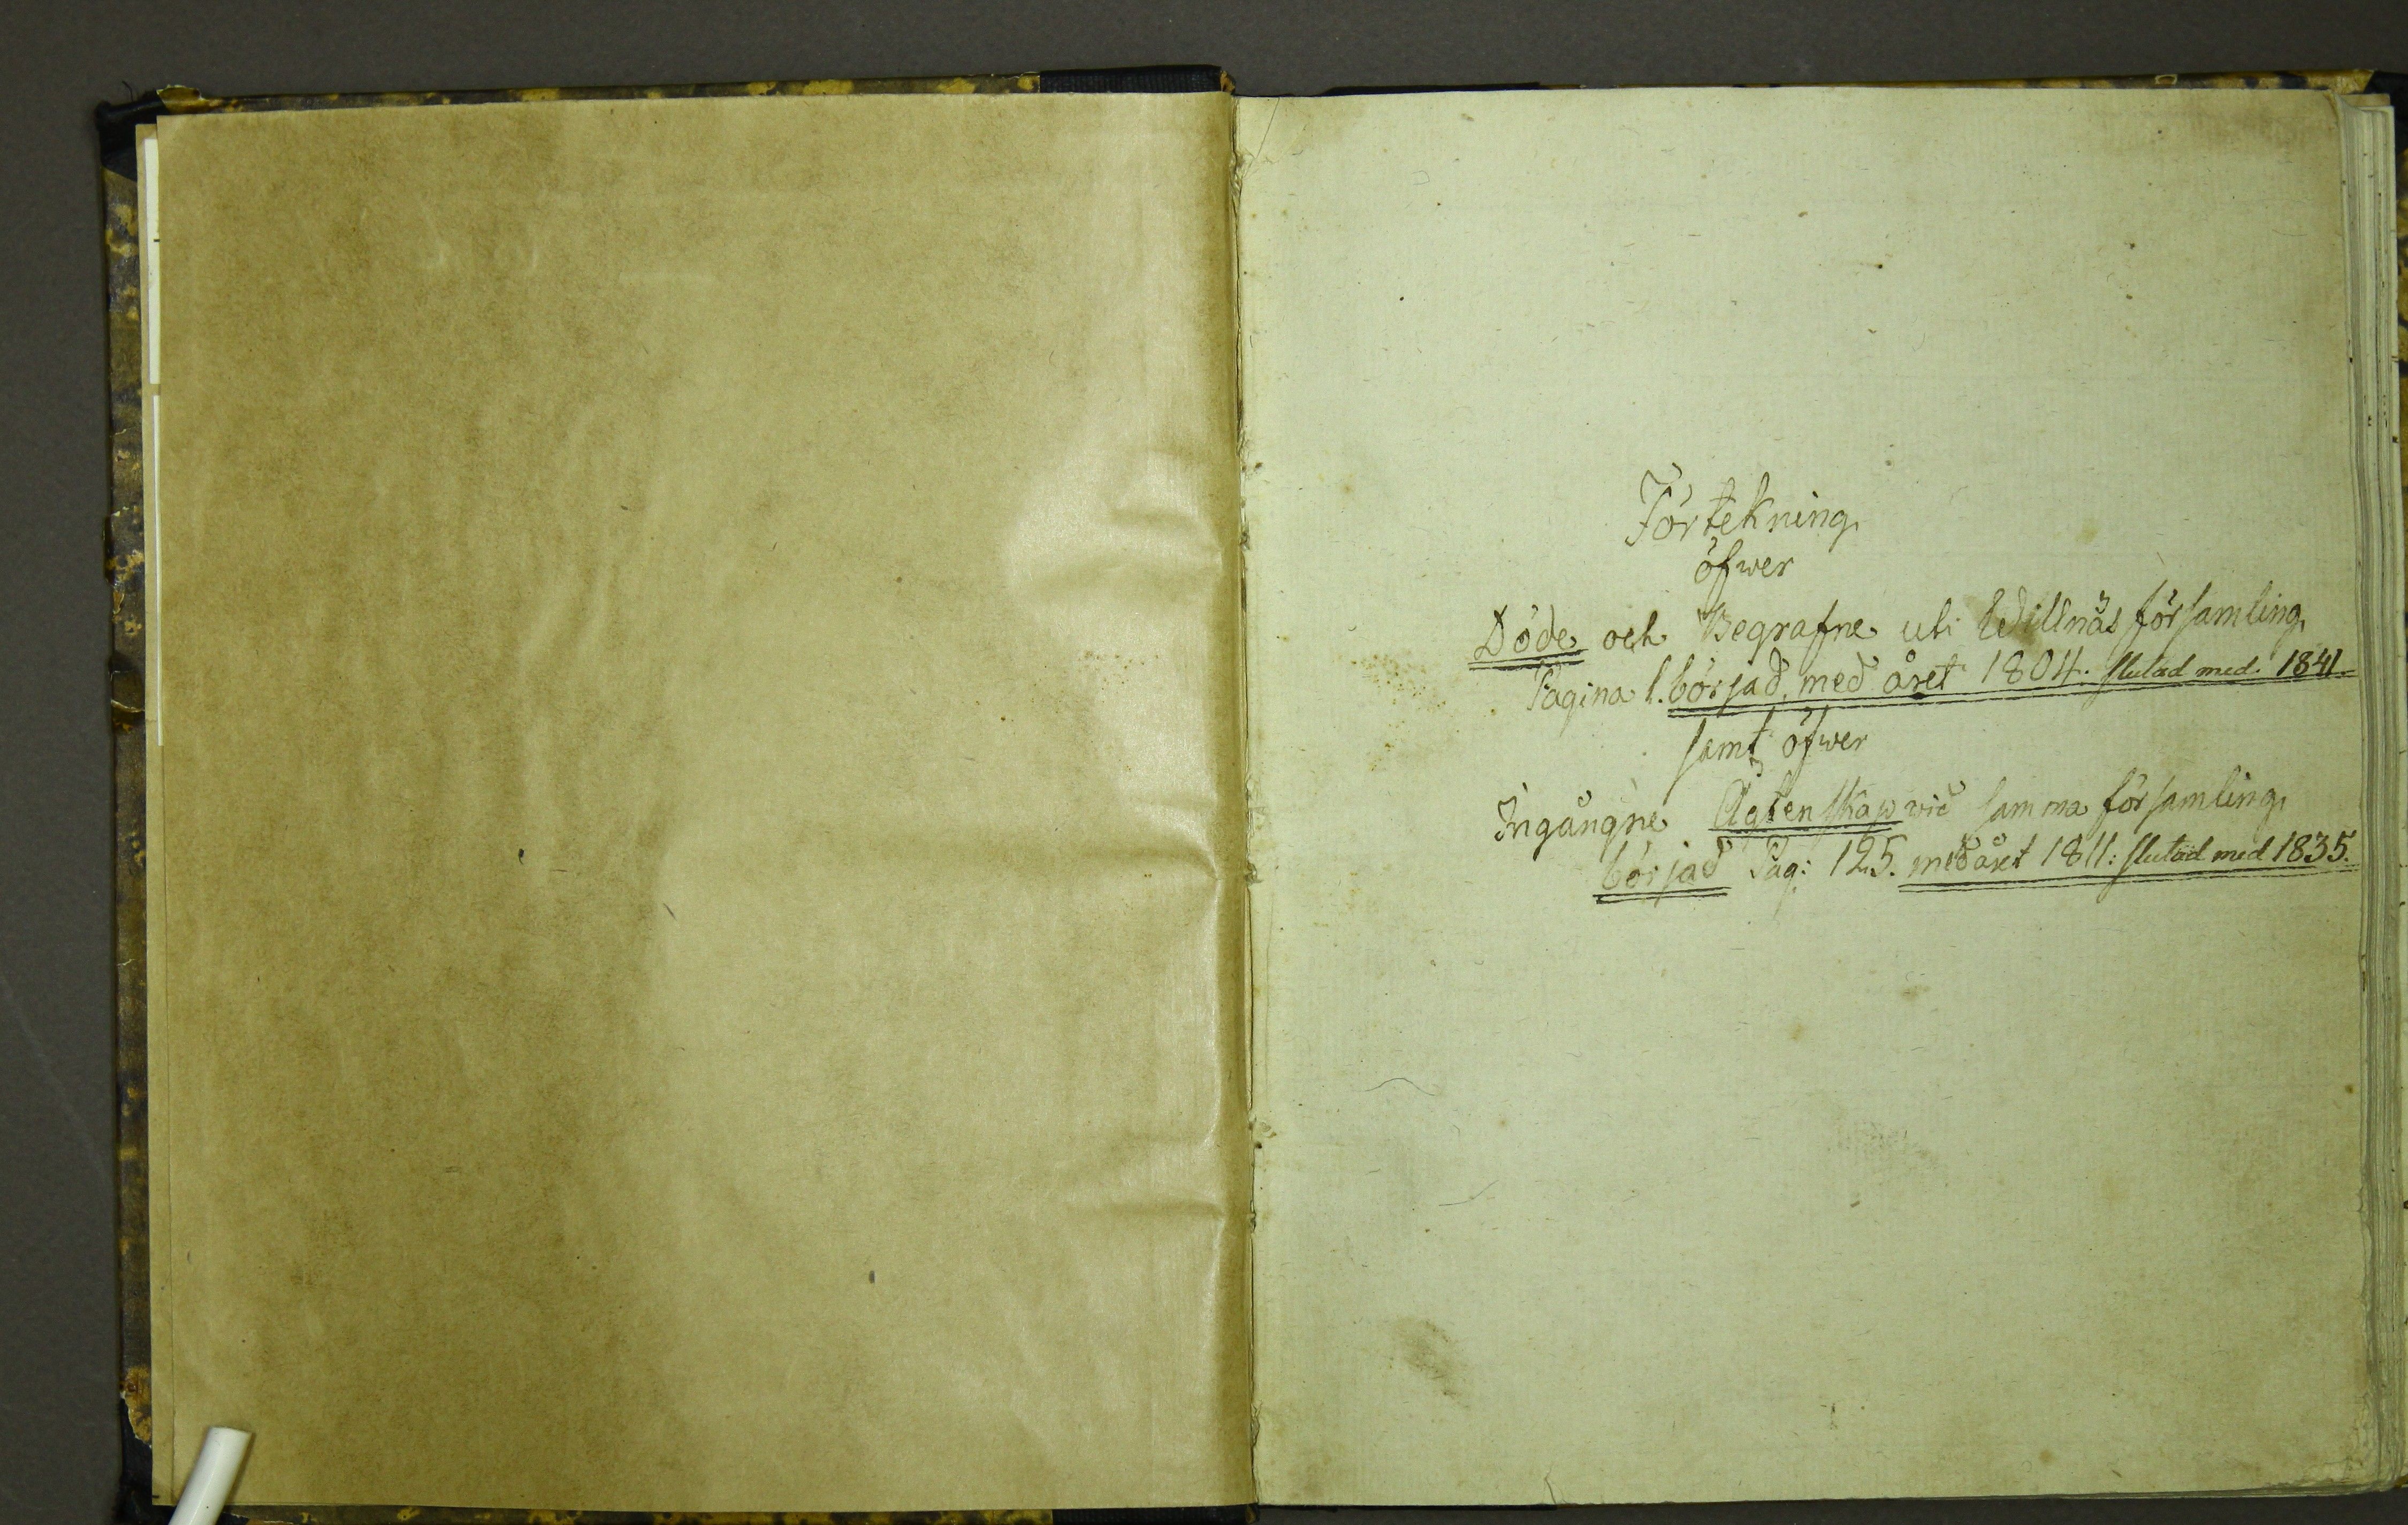 Förtekning
öfwer
Döde och Begrafne uti Willnäs församling
Pagina 1. börjad med året 1804. slutad med 1841
samt öfwer
Ingångne Ägtenskap vid samma församling,
börjad Pag: 125. med året 1811: slutad med 1835.